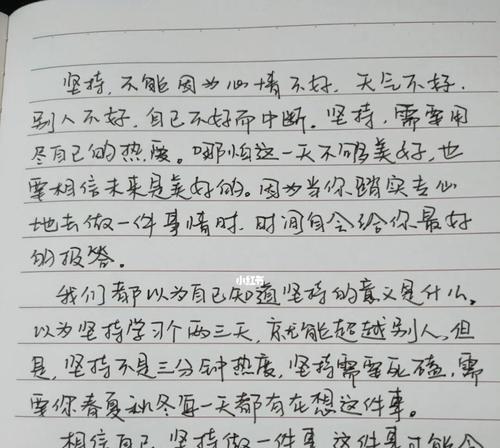 坚持，不能因为心情不好，天气不好，
别人不好，自己不好而中断。坚持，需要用
尽自己的热度。哪怕这一天不够美好，也
要相信未来是美好的。因为当你踏实专心
地去做一件事情时，时间自会给你最好
的报答。
小红书
我们都以为自己知道坚持的意义是什么。
以为坚持学习个两三天，就能超越别人，但
是，坚持不是三分钟热度，坚持需要死磕，需
要你春夏秋冬每一天都有在想这件事。
相信自己，坚持做一件事，这件事可能会